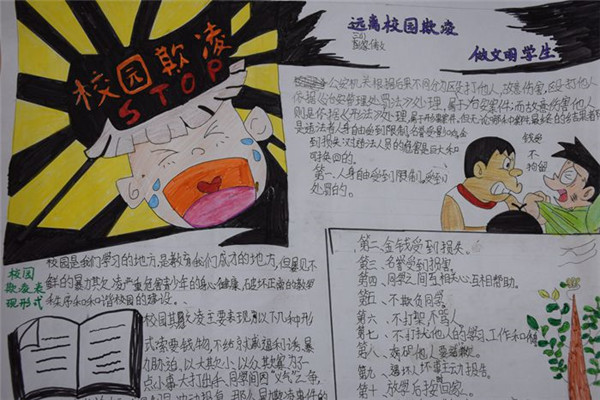 校园欺凌
STOP
远离校园欺凌
做文明学生
公安机关根据后果不同分为殴打他人,故意伤害,殴打他人
依据《治安管理处罚法》处理,属于治安案件;而故意伤害他人
则是依据《刑法》处理,属于刑事案件。但无论哪种案件最终的结果者
是违法者人身自由受到限制,名誉受影响,金钱受
到损失,对违法人员的危害是巨大和
可挽回的。
第一、人身自由受到限制,受到
处罚的。
不
拘留
校园
欺凌表
现形式
校园是我们学习的地方,是教育我们成才的地方,但屡见不
鲜的暴力欺凌严重危害青少年的身心健康,破坏正常的教学
秩序和和谐校园的建设。
校园欺凌主要表现为以下几种形
式:索要钱物,不给就威逼利诱,暴
力胁迫,以大欺小,以众欺寡;为了一
点小事大打出手,同学间因“义气”之争,
第二、金钱受到损失。
第三、名誉受到损害。
第四、同学之间互相关心互相帮助。
第五、不欺负同学。
第六、不打架,不骂人。
第七、不打扰他人的学习、工作和休
第八、
第九、
第十、放学后按 回家。